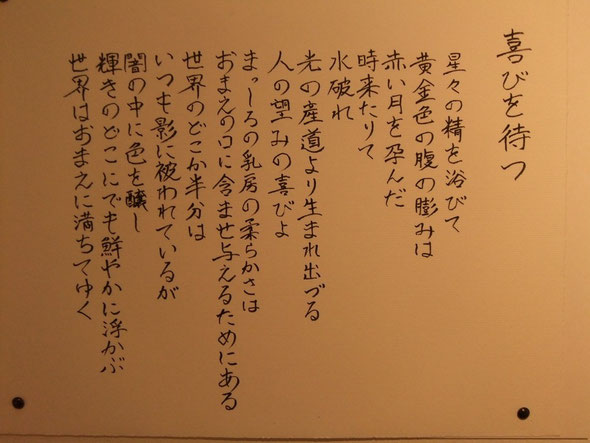 喜びを待つ
星々の精を浴びて
黄金色の腹の膨みは
赤い月を孕んだ
時来たりて
水破れ
光の産道より生まれ出づる
人の望みの喜びよ
まっしろの乳房の柔らかさは
おまえの口に含ませ与えるためにある
世界のどこか半分は
いつも影に被われているが
闇の中に色を醸し
輝きのどこにでも鮮やかに浮かぶ
世界はおまえに満ちてゆく